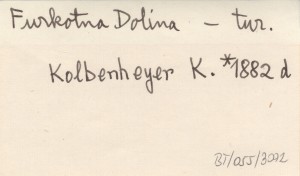 Furkotna Dolina – tur.
Kolbenheyer K. *1882 d
BT/055/3072